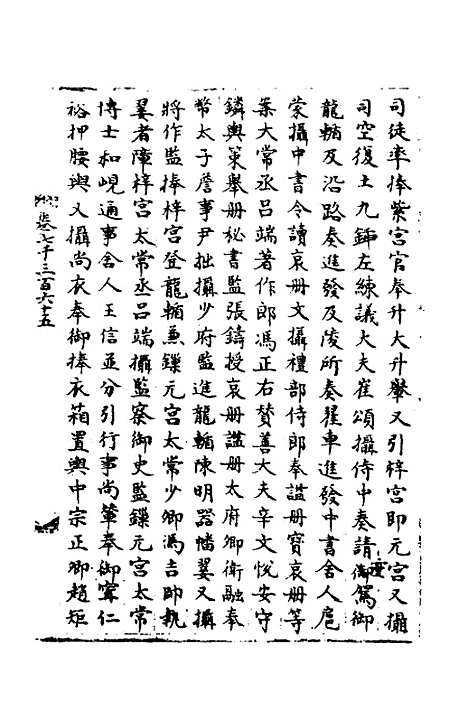 司徒率捧紫宮官奉升大升轝又引梓宮即元宮又攝
司空復土九鍤左練議大夫崔頌攝侍中奏請御駕御
龍輴及沿路奏進發及陵所奏權車進發中書舍人扈
蒙攝中書令讀哀册文攝禮部侍郎奉謚册寶哀册等
案大常丞呂端著作郎馮正右賛善大夫辛文悅安守
鏻輿策舉册秘書監張鑄授哀册謚册太府卿衛融奉
幣太子詹事尹拙攝少府監進龍輴陳明器幡翣又攝
將作監捧梓宮登龍輴兼鏁元宮太常少卿馮吉帥執
翣者障梓宮太常丞呂端攝監察御史監鏁元宮太常
博士和峴通事舍人王信並分引行事尚輦奉御寗仁
裕押腰輿又攝尚衣奉御捧衣箱置輿中宗正卿趙矩
卷七千三百六十五